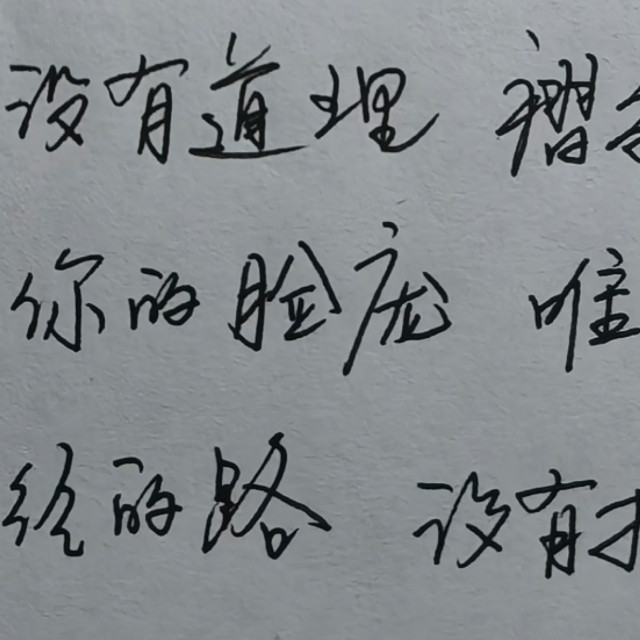 没有道理 褶
你的脸庞 唯
绕的路 没有